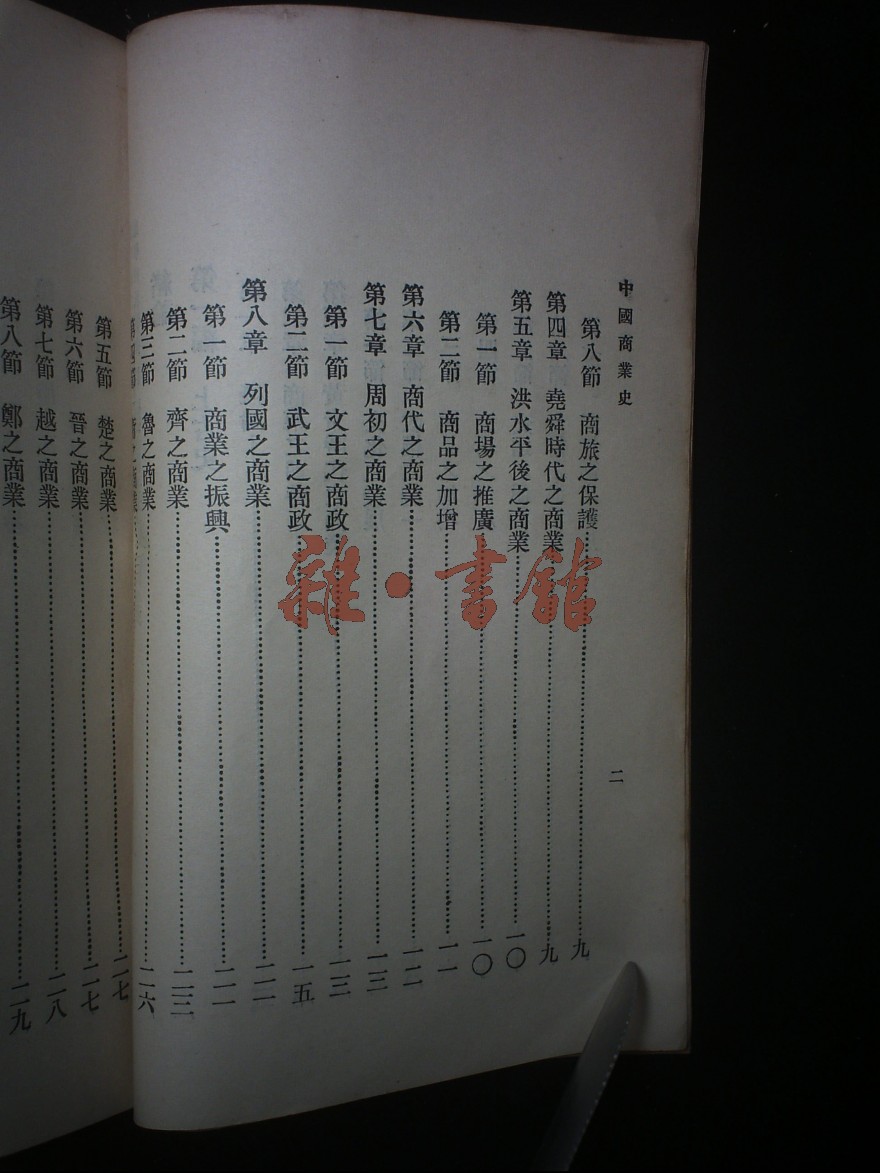 中國商業史
二
第八節　商旅之保護……九
第四章　堯舜時代之商業……九
第五章　洪水平後之商業……一〇
第一節　商場之推廣……一〇
第二節　商品之加增……一一
第六章　商代之商業……一二
第七章　周初之商業……一三
第一節　文王之商政……一三
第二節　武王之商政……一五
第八章　列國之商業……二一
第一節　商業之振興……二一
第二節　齊之商業……二三
第三節　魯之商業……二六
第四節　之商業……
第五節　楚之商業……二七
第六節　晉之商業……二七
第七節　越之商業……二八
第八節　鄭之商業……二九
雜·書館